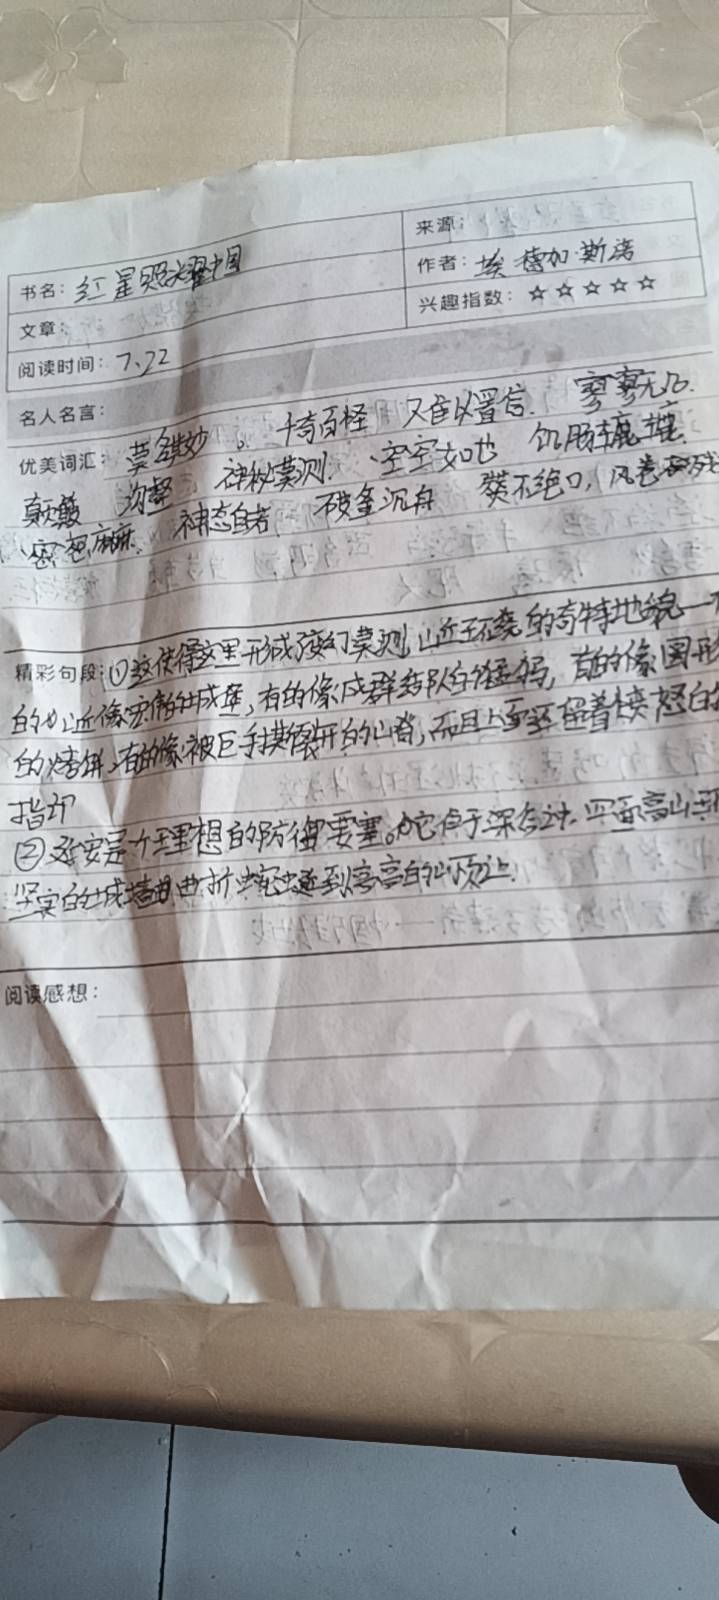 书名：红星照耀中国
来源：
作者：埃德加·斯诺
文章：
兴趣指数：☆☆☆☆☆
阅读时间：7、22
名人名言：
优美词汇：莫名其妙 。 千奇百怪 难以置信. 寥寥无几.
颠簸 沟壑 神秘莫测. 、空空如也 饥肠辘辘.
密密麻麻 神态自若 破釜沉舟 赞不绝口，风卷残
精彩句段：①这使得这里形成了变幻莫测 的奇特地貌一有
的山丘像宏伟的城堡，有的像成群结队的猛犸，有的像圆形
的烤饼，有的像被巨手撕裂开的山脊，而且上面还留着愤怒的
指印
②延安是个理想的防御要塞。它位于深谷中. 四面高山环
坚实的城墙曲曲折折蜿蜒到高高的山顶上.
阅读感想：